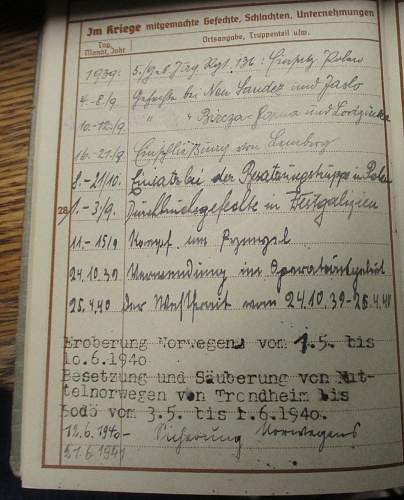 Im Kriege mitgemachte Gefechte, Schlachten, Unternehmungen
Tag, Monat, Jahr
Ortsangabe, Truppenteil usw.
1939: 5./Geb. Jäg. Rgt. 136: Einsatz Polen
4.-8./9. Gefechte bei Neu Sandez und Jaslo
10.-12./9. " " Bircza- und Lodzinka
16.-21./9. Einschließung von Lemberg
8.-21/10. Einsatz bei der Besatzungstruppe in Polen
28/ 1.-3/9. Durchbruchsgefechte in Westgalizien
11.-15/9 Kampf um Przmysl
24.10.39 Verwendung im Operationsgebiet
25.4.40 der Westfront vom 24.10.39-25.4.40
Eroberung Norwegens vom 1.5. bis
10.6.1940
Besetzung und Säuberung von Mit-
telnorwegen von Trondheim bis
Bodö vom 3.5. bis 1.6.1940.
12.6.1940- Sicherung Norwegens
21.6.1941